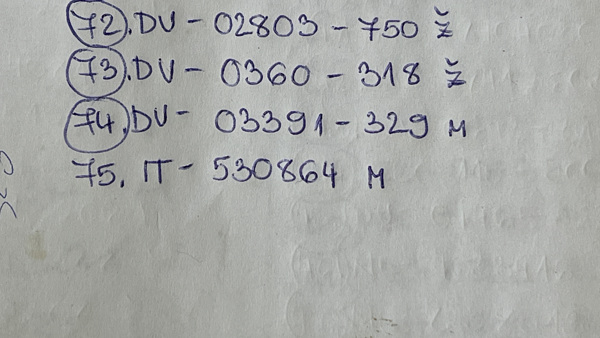 72. DV - 02803 - 750 ž
73. DV - 0360 - 318 ž
74. DV - 03391 - 329 м
75. IT - 530864 м